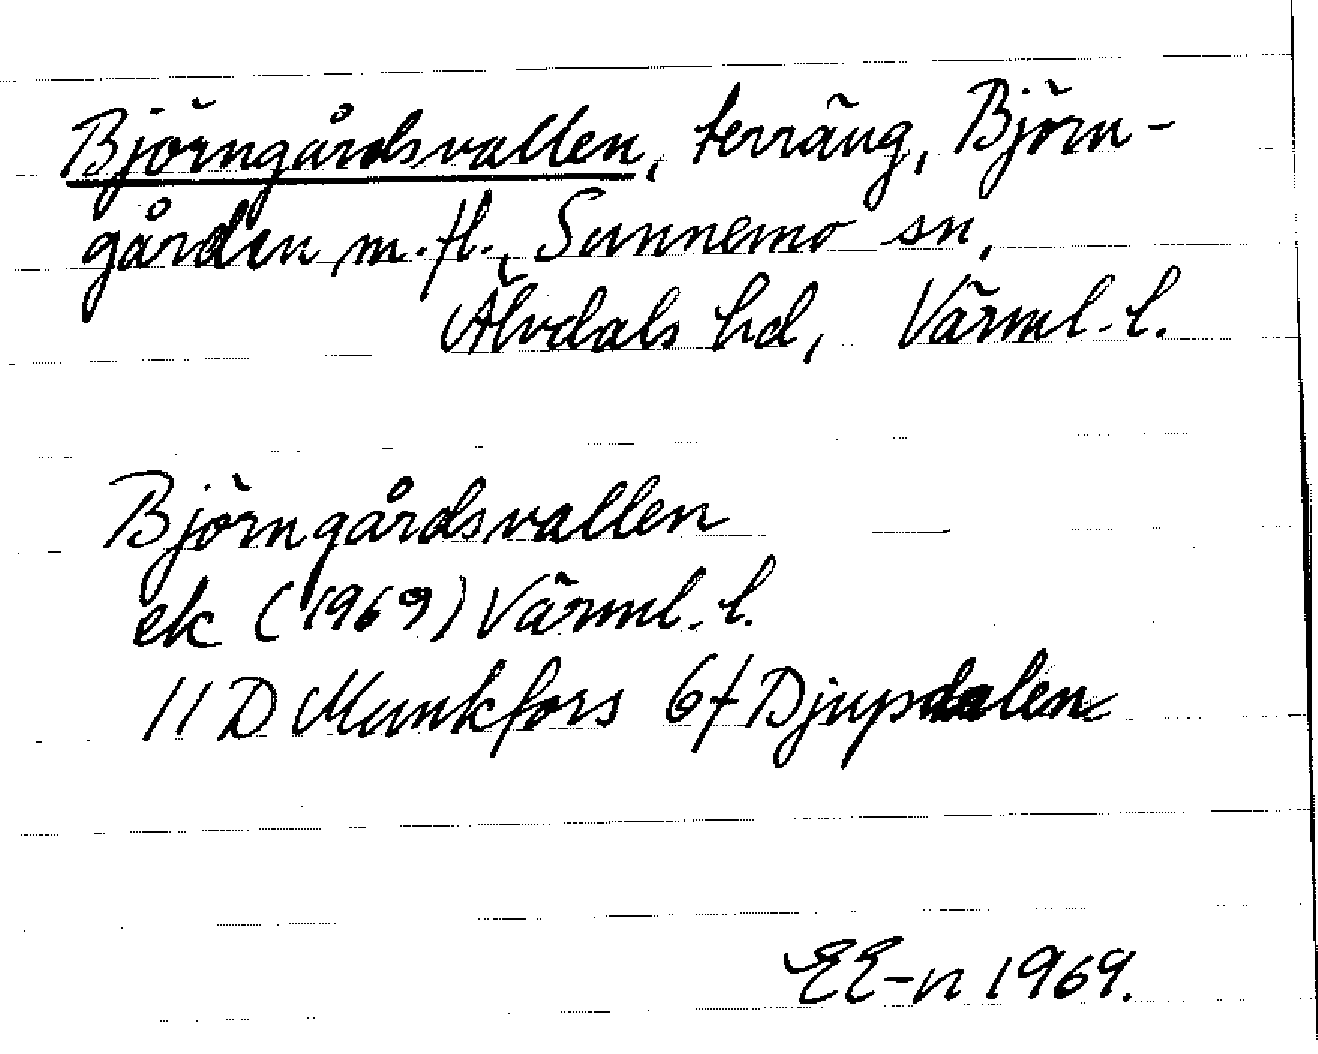 Björngårdsvallen, terräng, Björn-
gården m.fl., Sunnemo sn,
Älvdals hd, Värml. l.
Björngårdsvallen
ek (1969) Värml. l.
11 D Munkfors 6f Djupdalen
EE-n 1969.